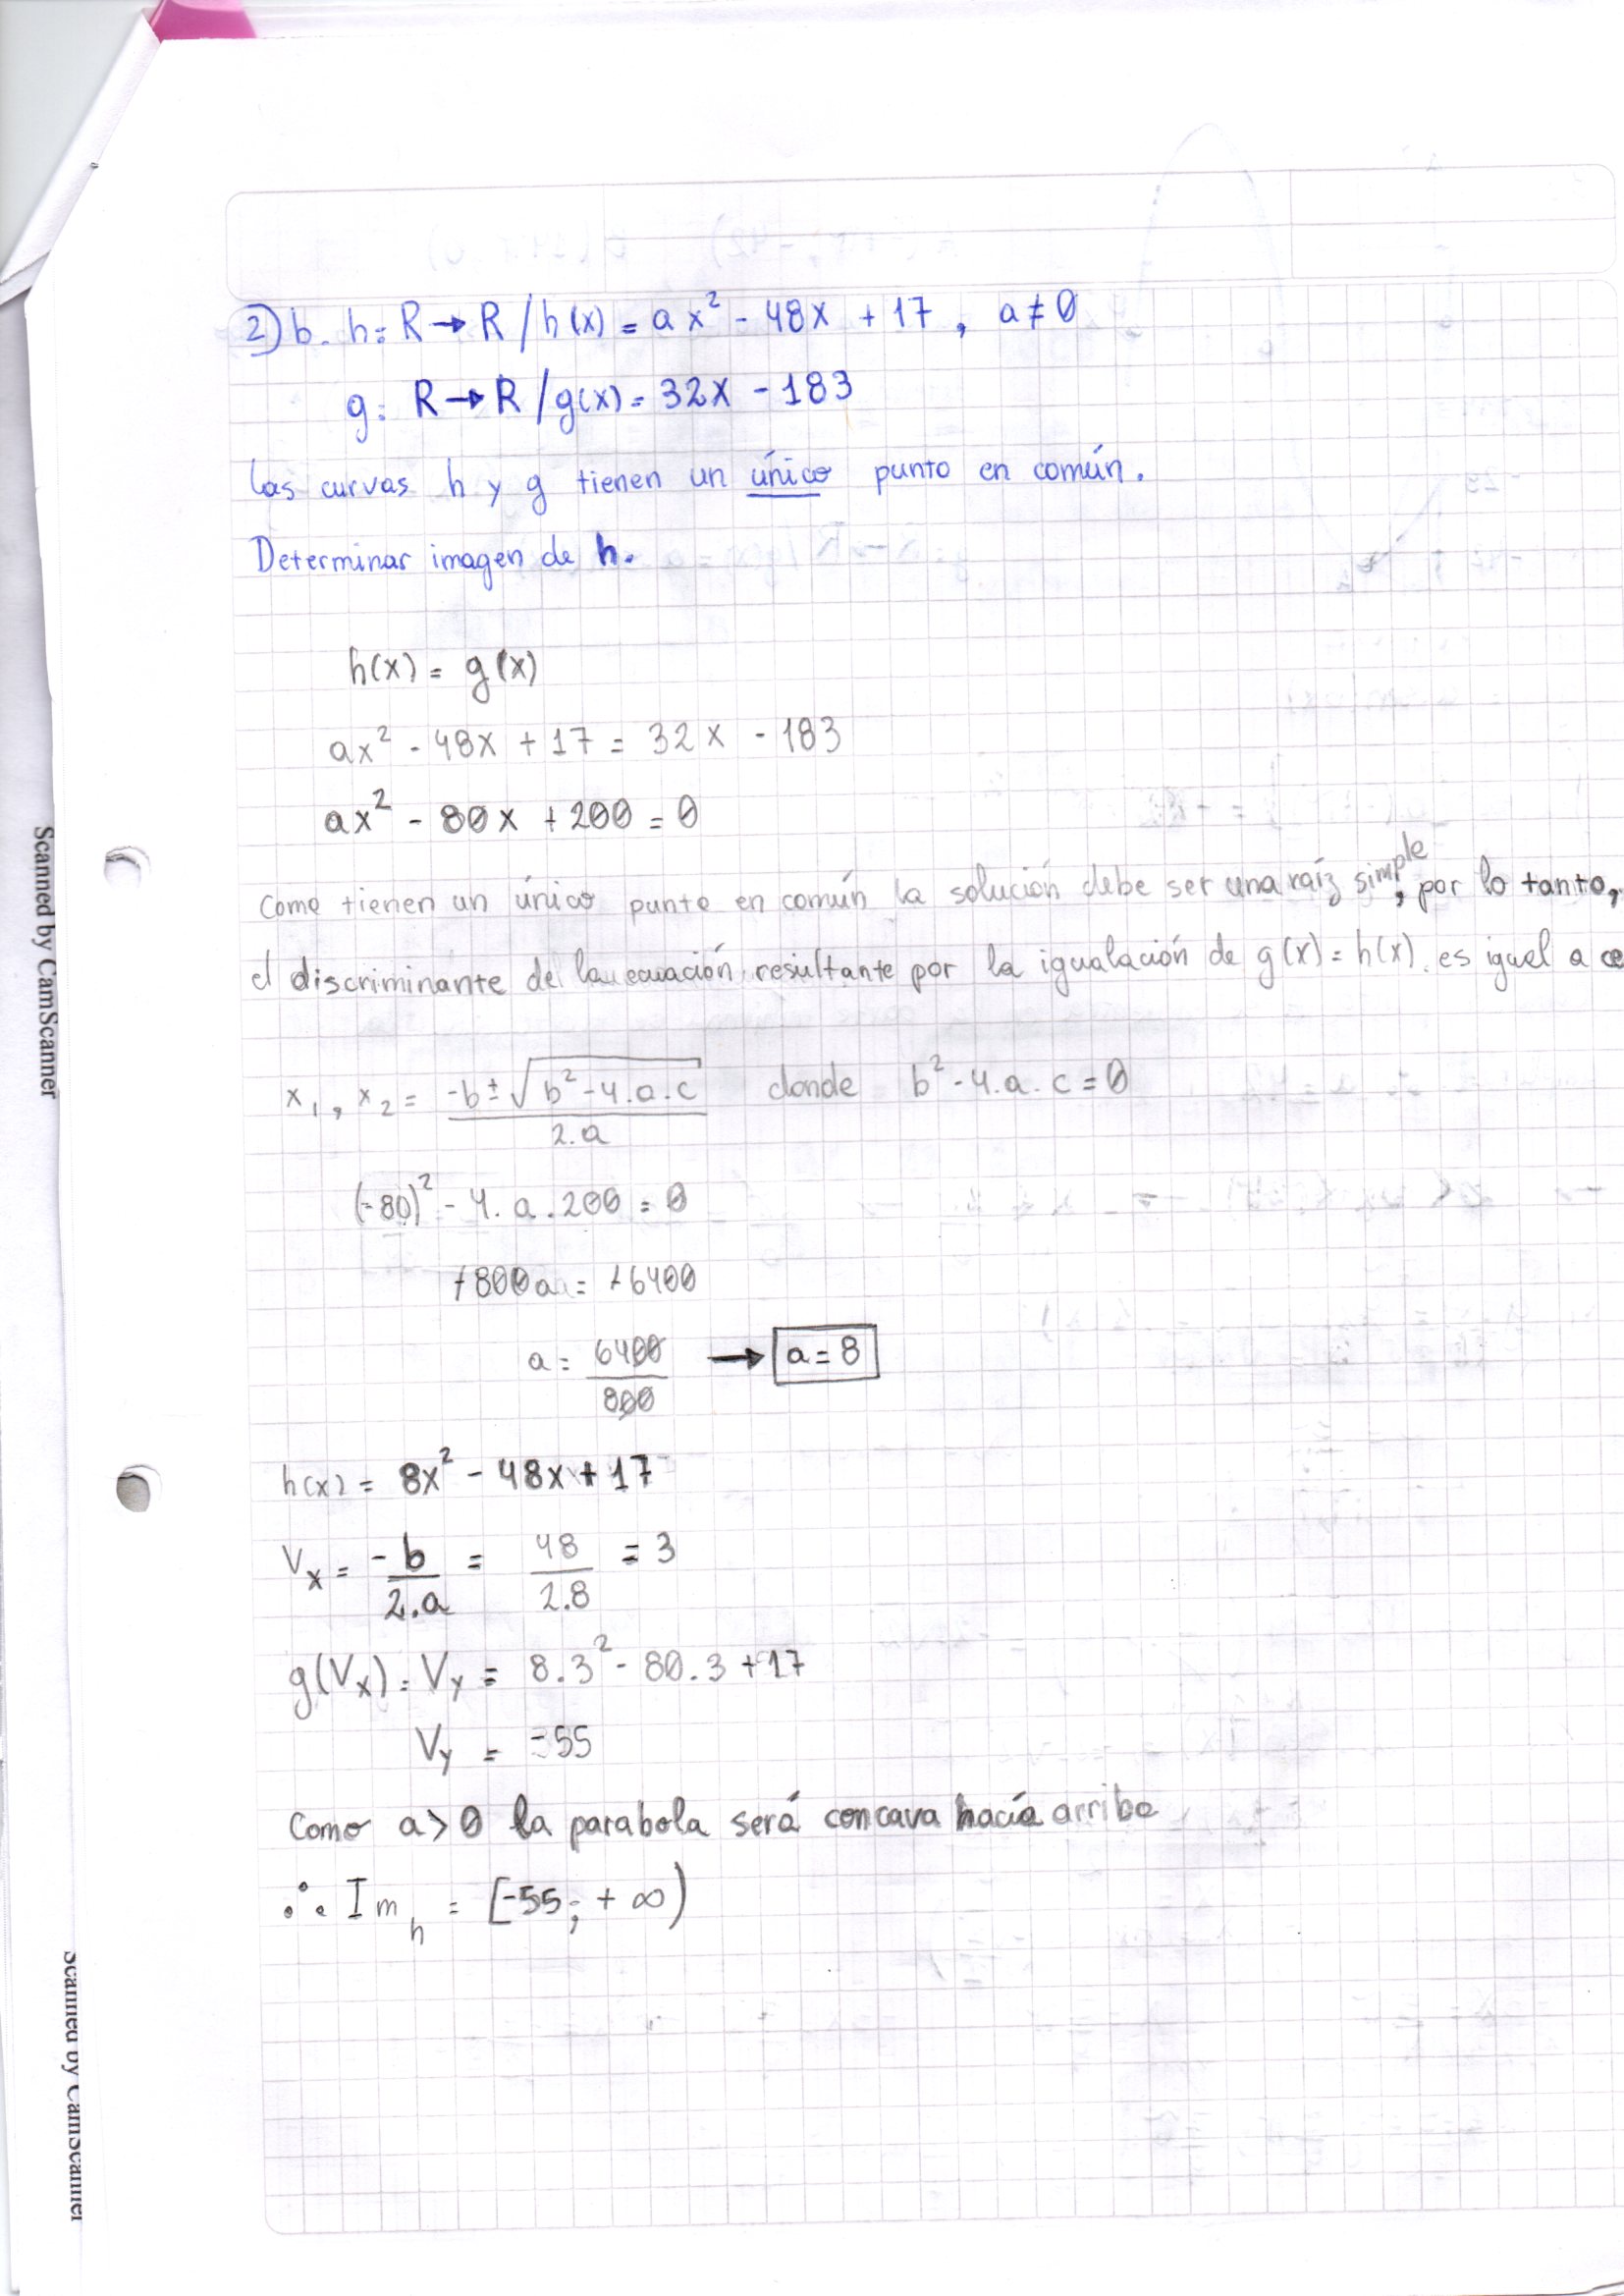 2) b. h: R → R / h(x) = ax² - 48x + 17 , a ≠ 0
g: R → R / g(x) = 32x - 183
las curvas h y g tienen un único punto en común.
Determinar imagen de h.
h(x) = g(x)
ax² - 48x + 17 = 32x - 183
ax² - 80x + 200 = 0
Como tienen un único punto en común la solución debe ser una raíz simple, por lo tanto,
el discriminante de la ecuación resultante por la igualación de g(x) = h(x). es igual a ce
x₁, x₂ = -b ± √(b² - 4.a.c) / 2.a donde b² - 4.a.c = 0
(-80)² - 4. a . 200 = 0
+800a = +6400
a = 6400 / 800 → a = 8
h(x) = 8x² - 48x + 17
Vx = -b / 2.a = 48 / 2.8 = 3
g(Vx) = Vy = 8.3² - 80.3 + 17
Vy = -55
Como a > 0 la parabola será concava hacía arriba
∴ Im h = [-55; + ∞)
Scanned by CamScanner
Scanned by CamScanner